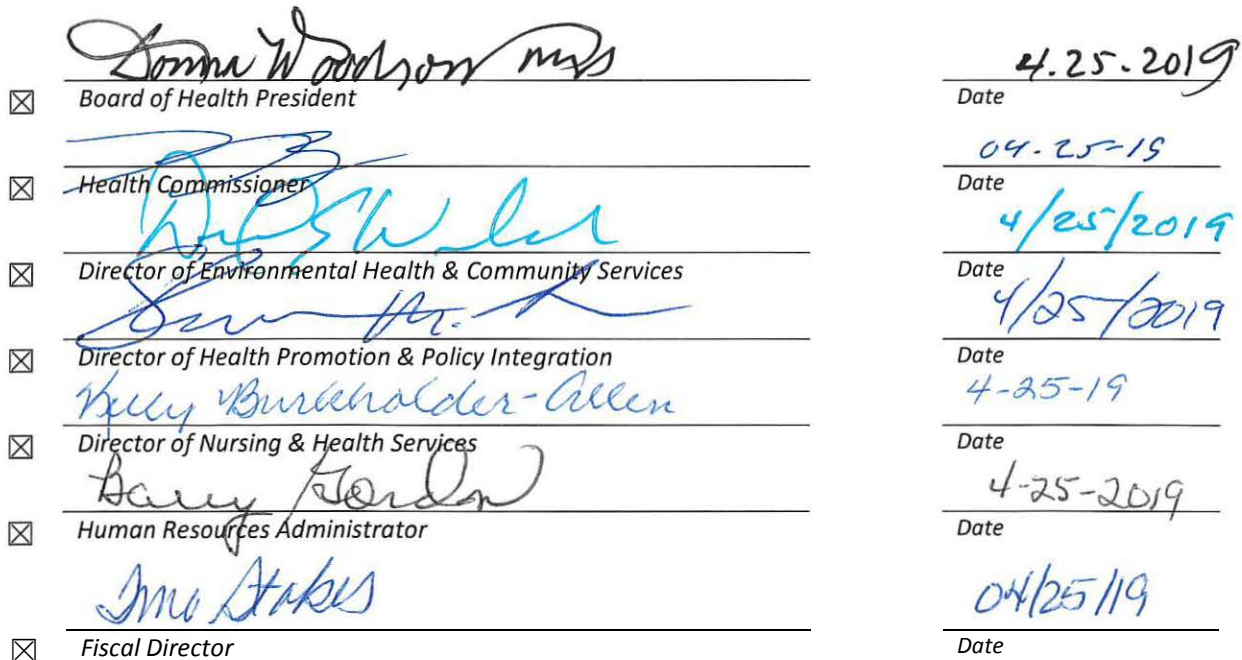 Donna Woodson MD 4.25.2019
☒ Board of Health President Date
04-25-19
☒ Health Commissioner Date
4/25/2019
☒ Director of Environmental Health & Community Services Date
4/25/2019
☒ Director of Health Promotion & Policy Integration Date
Kelly Burkholder-Allen 4-25-19
☒ Director of Nursing & Health Services Date
Barry Gordon 4-25-2019
☒ Human Resources Administrator Date
Stokes 04/25/19
☒ Fiscal Director Date